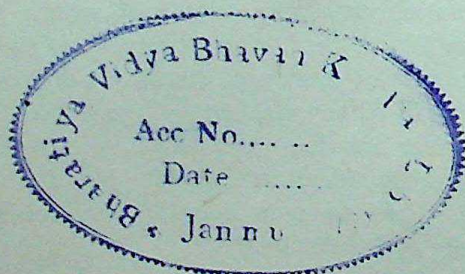 Bharatiya Vidya Bhavan K
Acc No.... ..
Date ......
Jammu